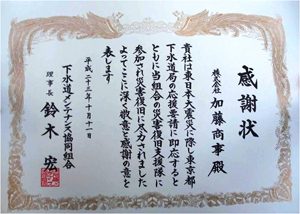 感謝状
株式会社 加藤商事 殿
貴社は東日本大震災に際し東京都
下水道局の応援要請に即応すると
ともに当組合の災害復旧支援隊に
参加され災害復旧に尽力されました
よってここに深く敬意と感謝の意を
表します
平成二十三年十月十一日
下水道メンテナンス協同組合
理事長 鈴木 宏